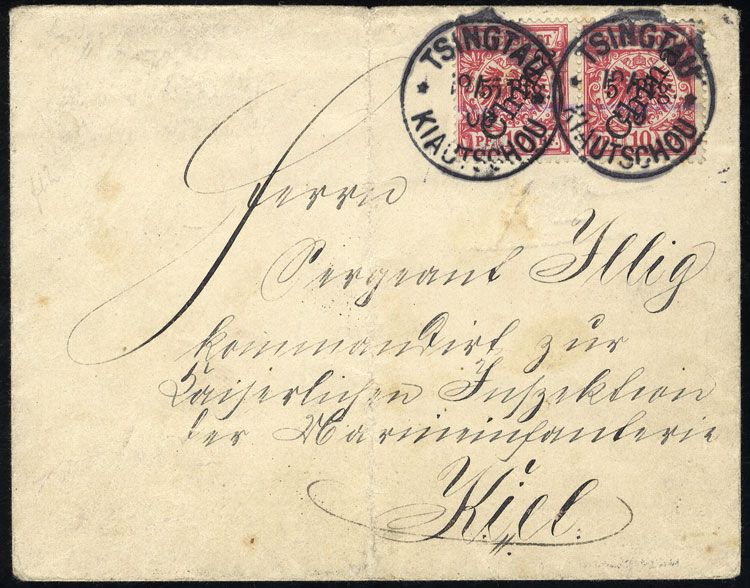 TSINGTAU
KIAUTSCHOU
China
TSINGTAU
KIAUTSCHOU
China
10
Herrn
Sergeant Illig
kommandirt zur
Kaiserlichen Inspektion
der Marineinfanterie
Kiel.